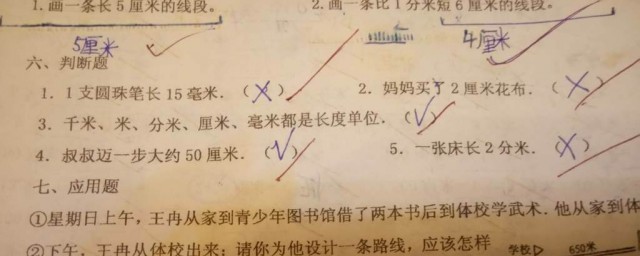 1.画一条长5厘米的线段。 2.画一条比1分米短6厘米的线段。
5厘米 4厘米
六、判断题
1. 1支圆珠笔长15毫米.（×） 2. 妈妈买了2厘米花布.（×）
3. 千米、米、分米、厘米、毫米都是长度单位.（√）
4. 叔叔迈一步大约50厘米.（√） 5. 一张床长2分米.（×）
七、应用题
①星期日上午,王冉从家到青少年图书馆借了两本书后到体校学武术.他从家到体
②下午,王冉从体校出来;请你为他设计一条路线,应该怎样 学校 650米